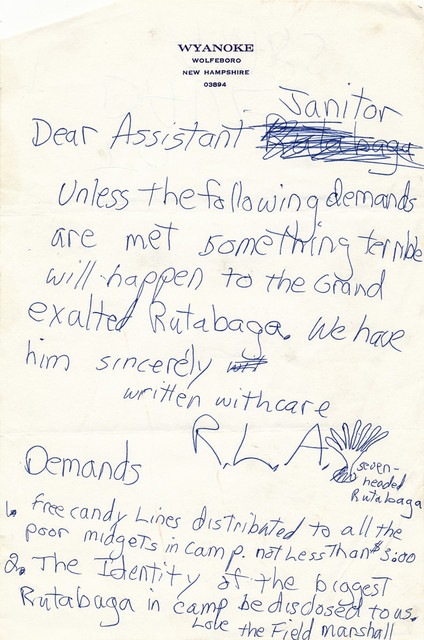 WYANOKE
WOLFEBORO
NEW HAMPSHIRE
03894
Janitor
Dear Assistant Rutabaga
Unless the following demands
are met something terrible
will happen to the Grand
exalted Rutabaga. We have
him sincerely
written with care
R.L.A.
seven-
headed
Rutabaga
Demands
1. free candy Lines distributed to all the
poor midgets in camp. not Less Than $3:00
2. The Identity of the biggest
Rutabaga in camp be disclosed to us.
Love the Field marshall